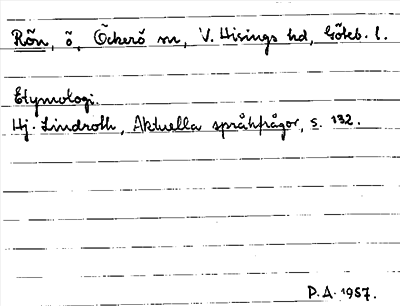 Rõn, õ, Õckerõ sn, V. Hisings hd, Gõteb. l.
Etymologi.
Hj. Lindroth, Aktuella språkfrågor, s. 132.
P.A. 1957.